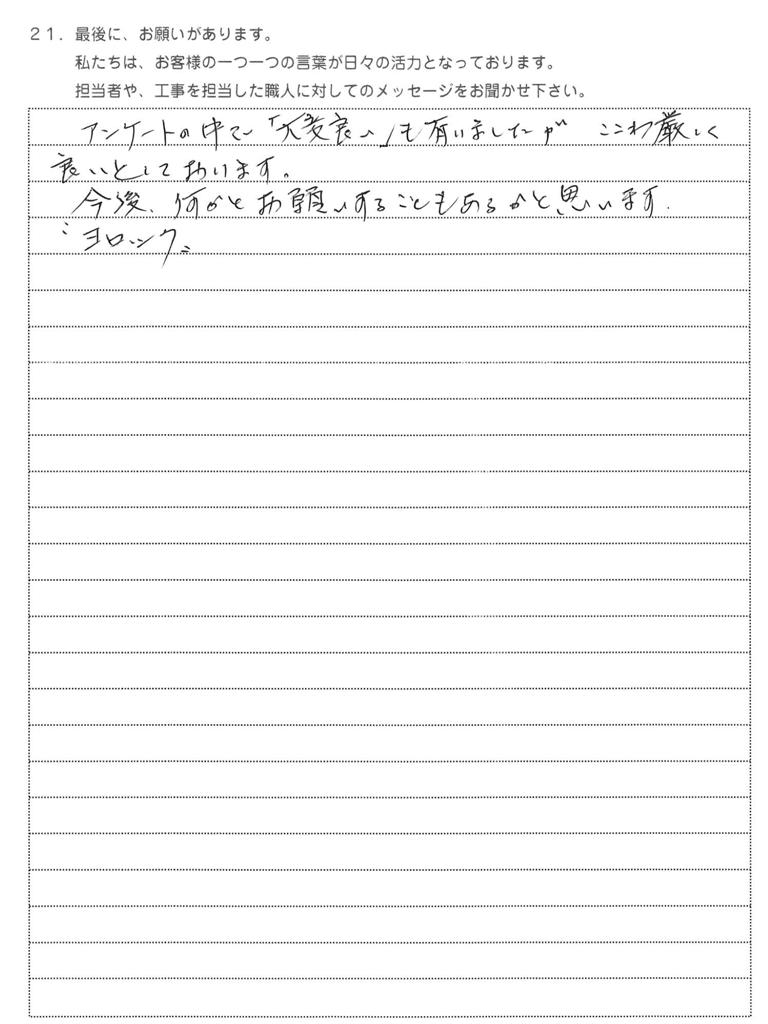 21. 最後に、お願いがあります。
私たちは、お客様の一つ一つの言葉が日々の活力となっております。
担当者や、工事を担当した職人に対してのメッセージをお聞かせ下さい。
アンケートの中で「大変良い」も有いましたが ここわ厳しく
良いとしております。
今後、何かとお願いすることもあるかと思います.
ヨロシク